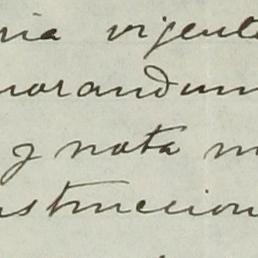 ria vigente
morandum
y nota m
nstruccion